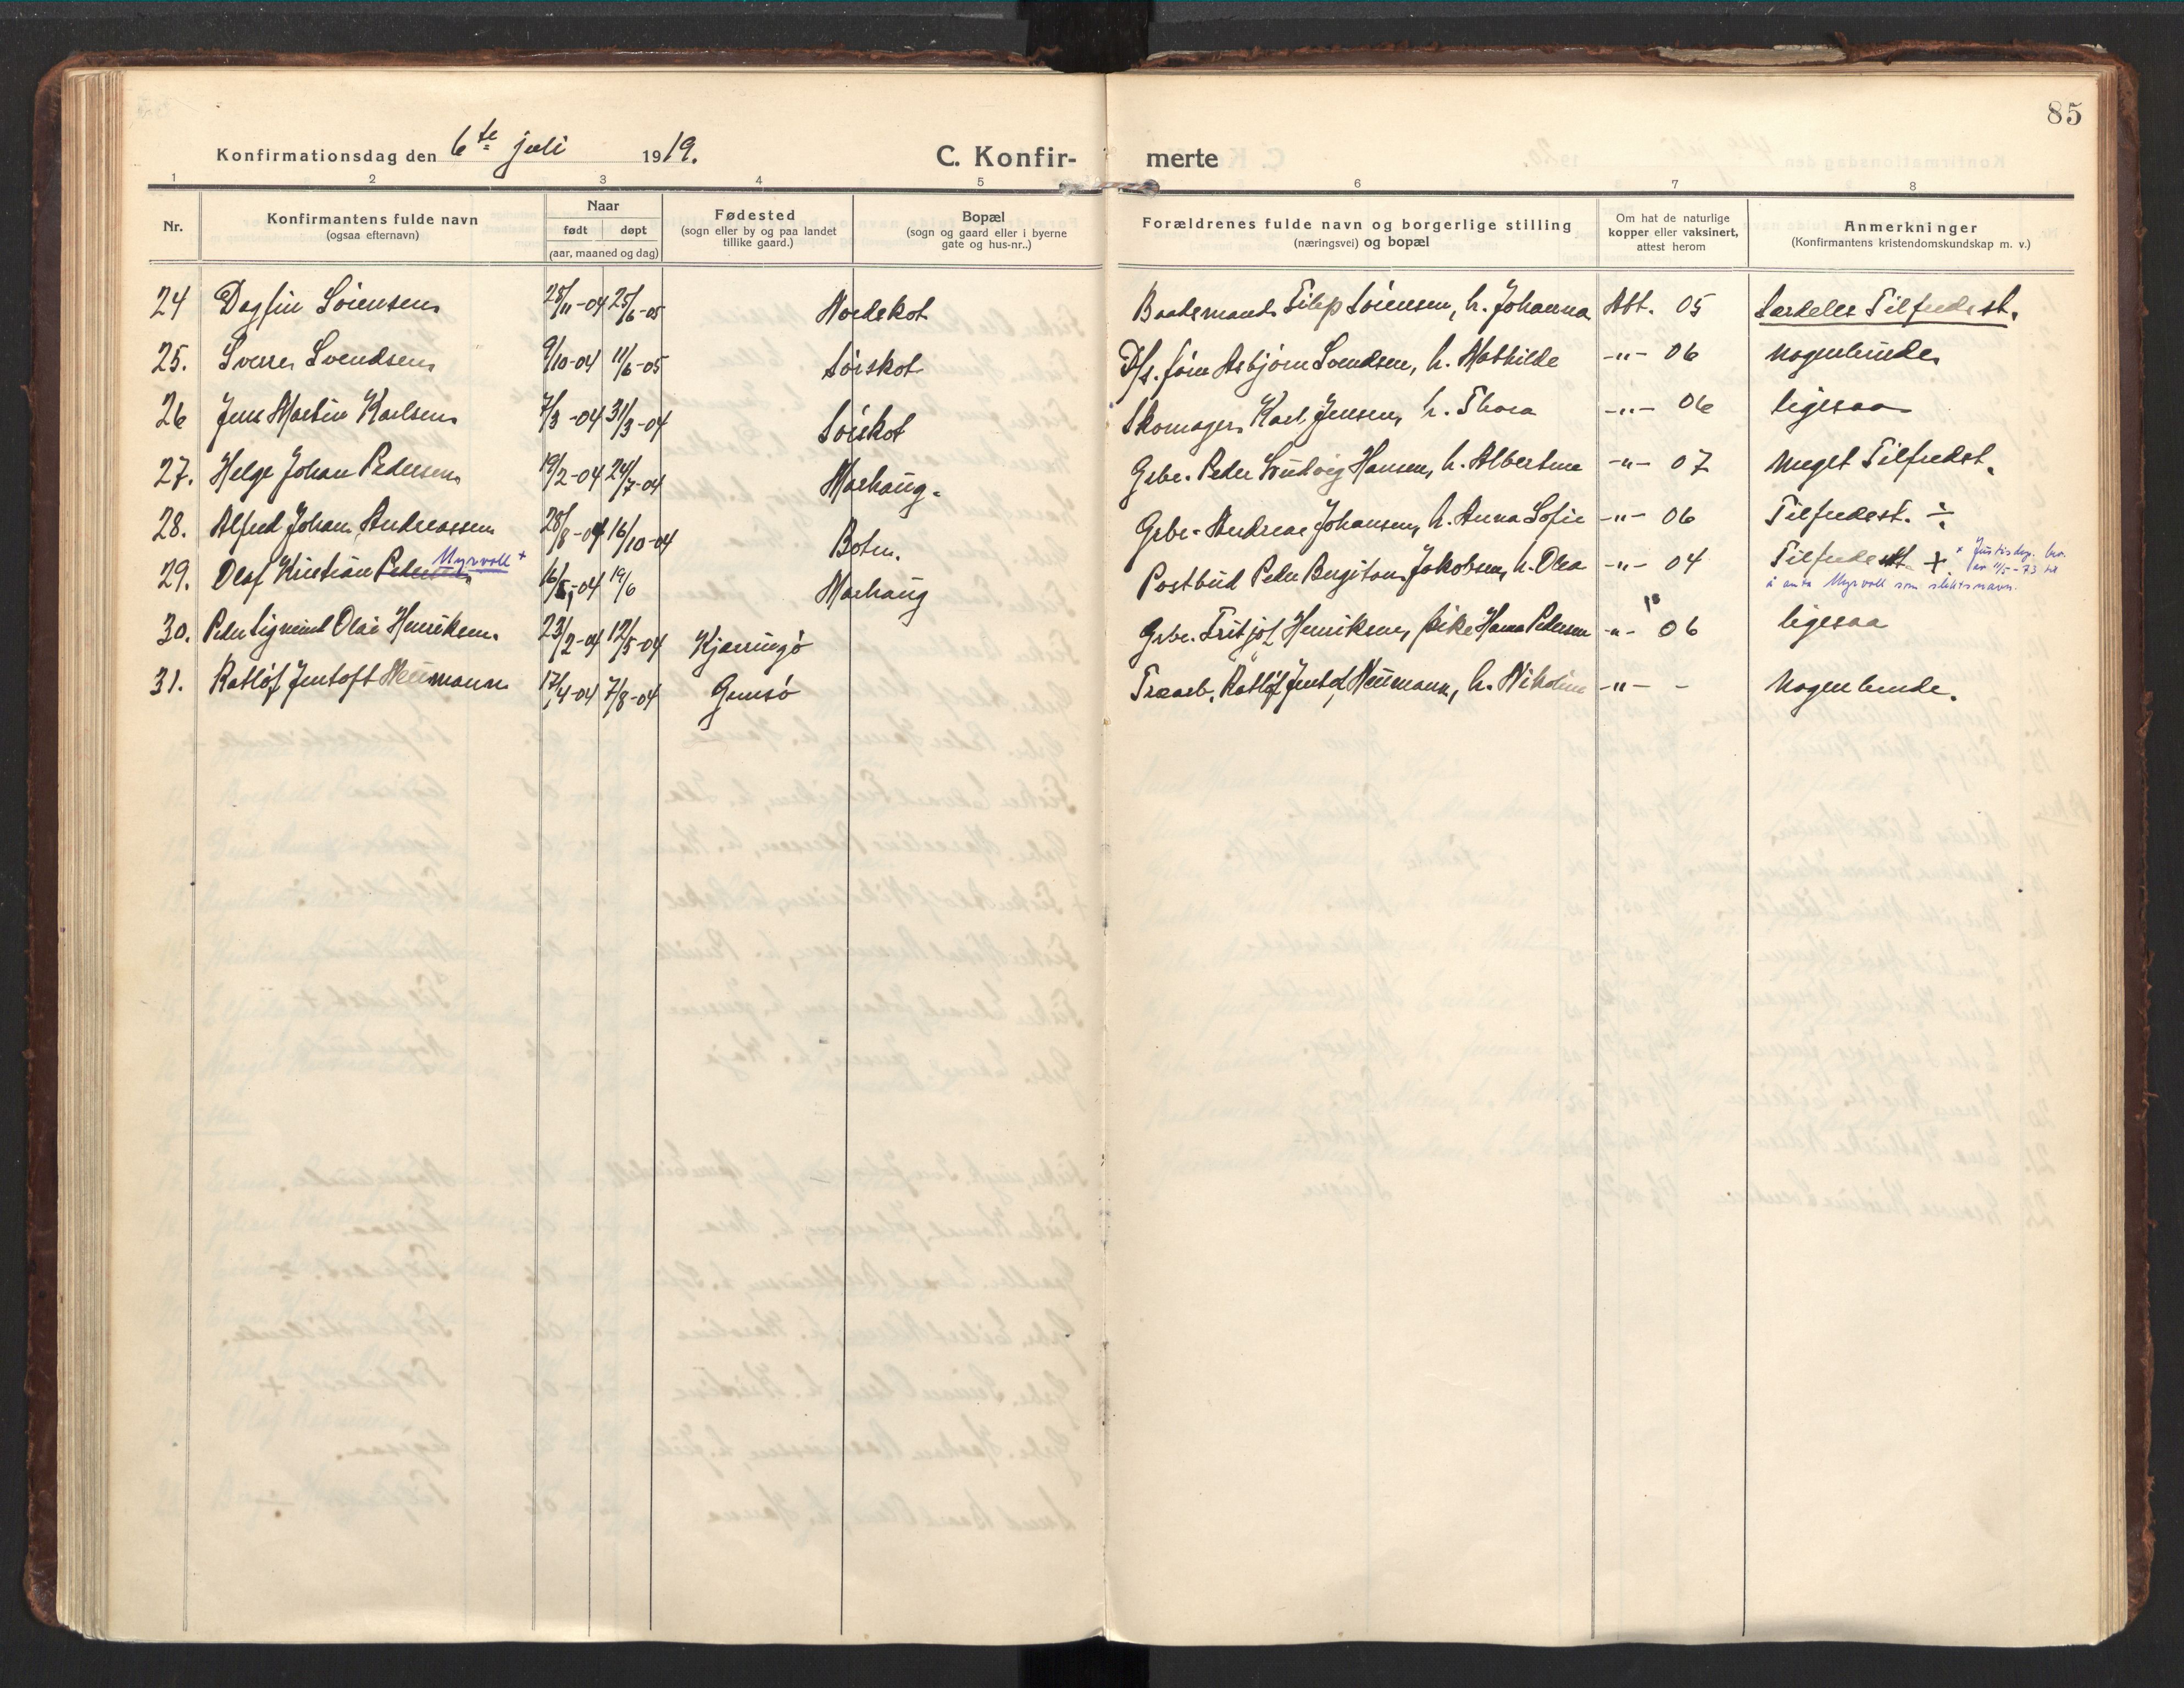 85
Konfirmationsdag den 6te juli 1919. C. Konfir- merte
1 2 3 4 5 6 7 8
Nr. Konfirmantens fulde navn (ogsaa efternavn) Naar født døpt (aar, maaned og dag) Fødested (sogn eller by og paa landet tillike gaard.) Bopæl (sogn og gaard eller i byerne gate og hus-nr..) Forældrenes fulde navn og borgerlige stilling (næringsvei) og bopæl Om hat de naturlige kopper eller vaksinert, attest herom Anmerkninger (Konfirmantens kristendomskundskap m. v.)
24 Dagfin Sörensen 28/11-04 25/6-05 Nordskot Baadsmand Filip Sörensen, h. Johanna Att. 05 Særdeles Tilfredsst.
25. Sverre Svendsen 9/10-04 11/6-05 Sörskot D/s. förer Asbjörn Svendsen, h. Mathilde -"- 06 Nogenlunde
26 Jens Martin Karlsen 7/3-04 31/3-04 Sörskot Skomager Karl Jensen, h. Thora -"- 06 ligesaa
27. Helge Johan Pedersen 19/2-04 24/7-04 Marhaug. Grbr. Peder Ludvig Hansen, h. Albertine -"- 07 Meget Tilfredst.
28. Alfred Johan Andreassen 28/8-04 16/10-04 Botn. Grbr. Andreas Johansen, h. Anna Sofie -"- 06 Tilfredsst. ÷
29. Olaf Kristian Pedersen Myrvoll + 16/5-04 19/6 Marhaug Postbud Peder Bergiton Jakobsen, h. Olea -"- 04 Tilfredsst. + x Justisdep. bev. av 11/5-73 til
å anta Myrvoll som slektsnavn.
30. Peder Sigmund Olai Henriksen. 23/2-04 12/5-04 Kjerringö Grbr. Fritjof Henriksen, pike Hanna Pedersen -"- 06 ligesaa
31. Rotlöf Jentoft Neumann 17/4-04 7/8-04 Gimsö Træarb. Rotlöf Jentoft Neumann, h. Nikoline -"- - Nogenlunde.